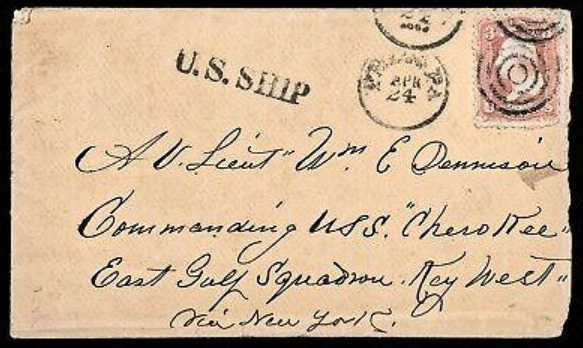 22
U.S. SHIP
PHILA PA
APR
24
3 3
A V. Lieut" Wm E Dennison
Commanding U.S.S. "Cherokee"
East Gulf Squadron. Key West"
Via New York.